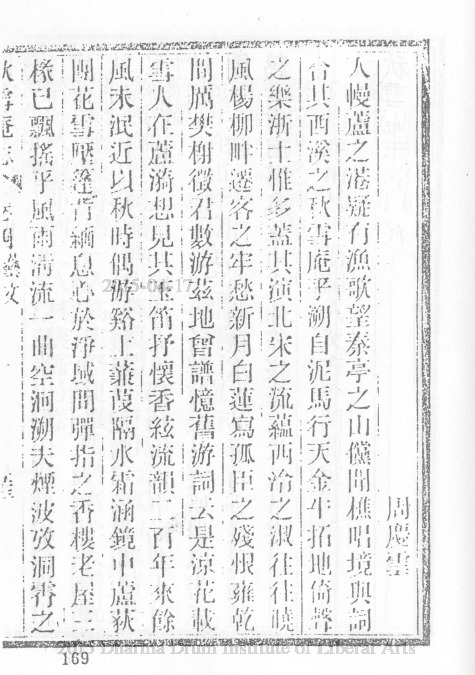 周慶雲
人幔蘆之港疑有漁歌望秦亭之山儻聞樵唱境與詞
合其西溪之秋雪庵乎溯自泥馬行天金牛拓地倚聲
之樂浙士惟多蓋其演北宋之流蘊西泠之淑往往曉
風楊柳畔遷客之牢愁新月白蓮寫孤臣之殘恨雍乾
間厲樊榭徵君數游茲地曾譜憶舊游詞云是涼花載
雪人在蘆漪想見其玉笛抒懷香絃流韻二百年來餘
風未泯近以秋時偶游谿上蒹葭隔水霜涵鏡中蘆荻
團花雪壓篷背緬息心於淨域問彈指之香樓老屋三
椽已飄搖乎風雨清流一曲空洞溯夫煙波攷洞霄之
秋雪庵志 卷四藝文
169
2025-04-17
Dharma Drum Institute of Liberal Arts